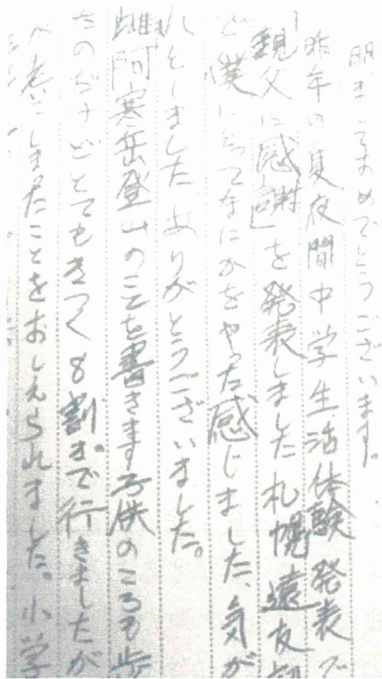 明きましておめでとうございます。
昨年の夏夜間中学生活体験発表で
「親父に感謝」を発表しました札幌遠友
ど僕にとってなにかをやった感じました、気が
れをしましたありがとうございました。
雌阿寒岳登山のことを書きます子供のころも歩
たのだけどとてもきつく8割まで行きましたが
が老いてしまったことをおしえられました。小学